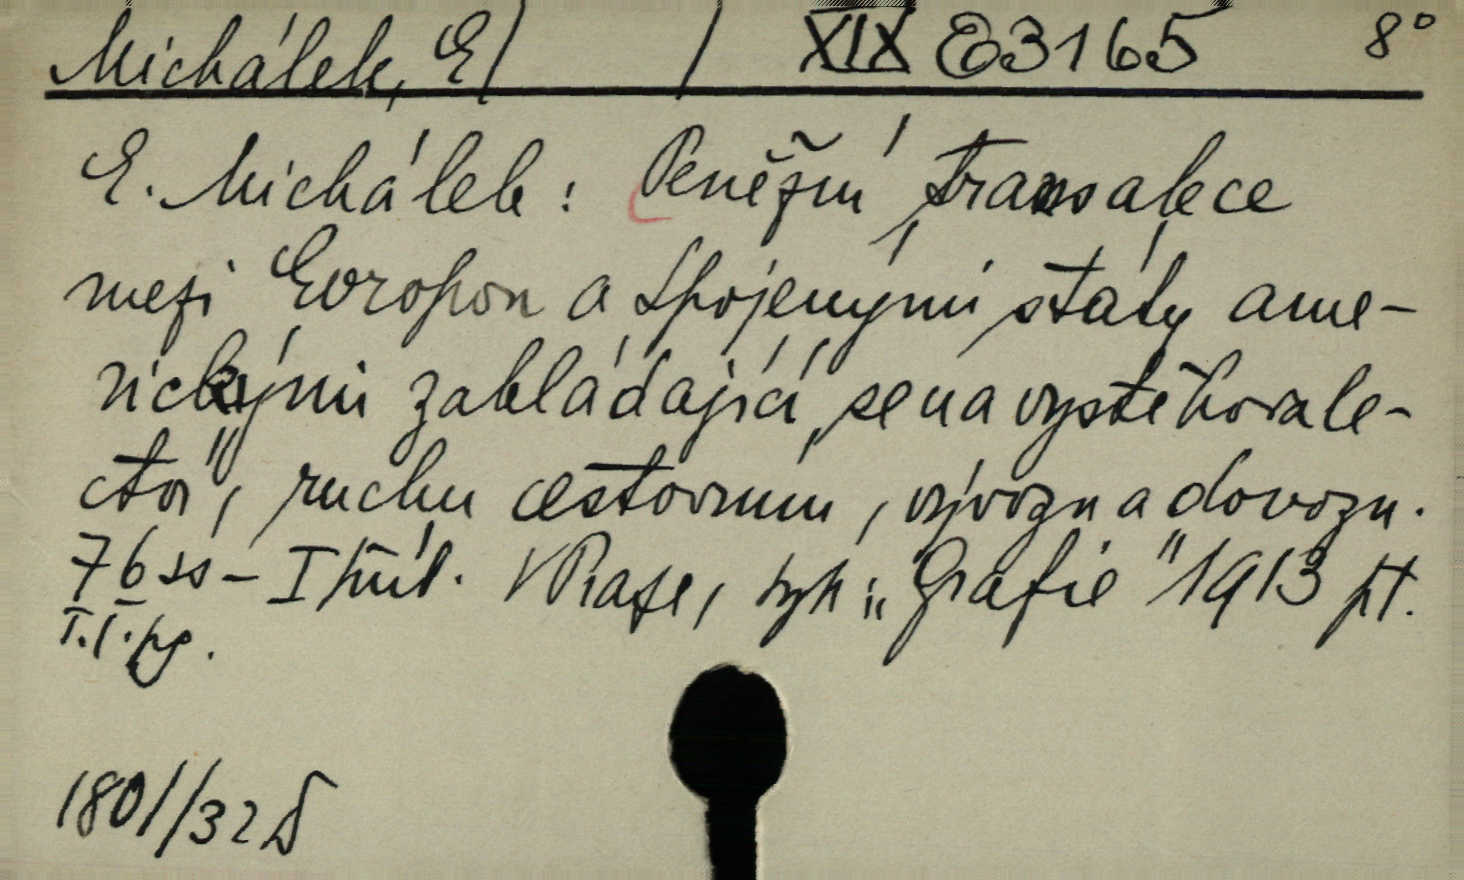 Michálek, E / / XIX E 3165 8°
E. Michálek: Peněžní transakce
mezi Evropou a Spojenými státy ame-
rickými zakládající se na vystěhovale-
ctví, ruchu cestovním, vývozu a dovozu.
76 ss - I příl. V Praze, typ: „Grafie" 1913 pt.
1801/32 D